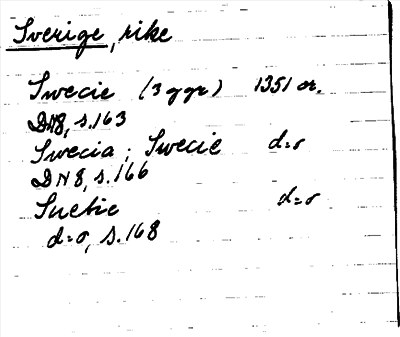 Sverige, rike
Swecie (3 ggr) 1351 or.
DN8, s.163
Swecia; Swecie d:o
DN8, s.166
Suetie d:o
d:o, s.168